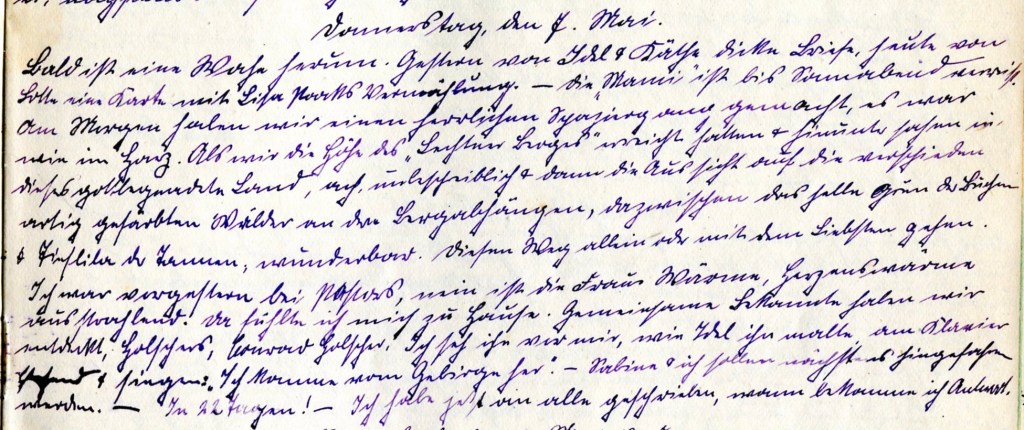 Donnerstag, den 7. Mai.
Bald ist eine Woche herum. Gestern von Idel & Käthe dicke Briefe, heute von
Lotte eine Karte mit Lisa Poocks Vermählung. — Die "Mami" ist bis Sonnabend verreist.
Am Morgen haben wir einen herrlichen Spaziergang gemacht, es war
wie im Harz. Als wir die Höhe des "Lechtner Berges" erreicht hatten & hinunter sahen in
dieses gottbegnadete Land, ach, unbeschreiblich & dann die Aussicht auf die verschieden
artig gefärbten Wälder an den Bergabhängen, dazwischen das helle Grün der Buchen
& Tieflila der Tannen, wunderbar. Diesen Weg allein oder mit dem Liebsten gehen.
Ich war vorgestern bei Pastors, nein ist die Frau Wärme, Herzenswärme
ausstrahlend. Da fühlte ich mich zu Hause. Gemeinsame Bekannte haben wir
entdeckt, Hölschers, Conrad Hölscher. Ich seh ihn vor mir, wie Idel ihn malte am Klavier
& singen: "Ich komme vom Gebirge her". — Sabine & ich sollen nächstens hingefahren
werden. — In 22 Tagen! — Ich habe jetzt an alle geschrieben, wann bekomme ich Antwort.